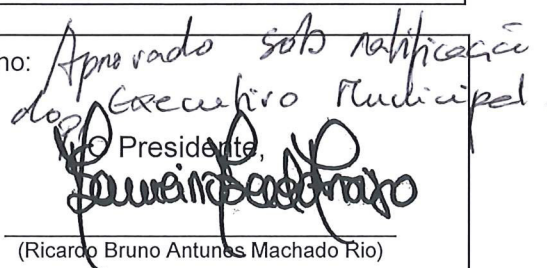 no: Aprovado sob ratificação
do Executivo Municipal
O Presidente,
(Ricardo Bruno Antunes Machado Rio)